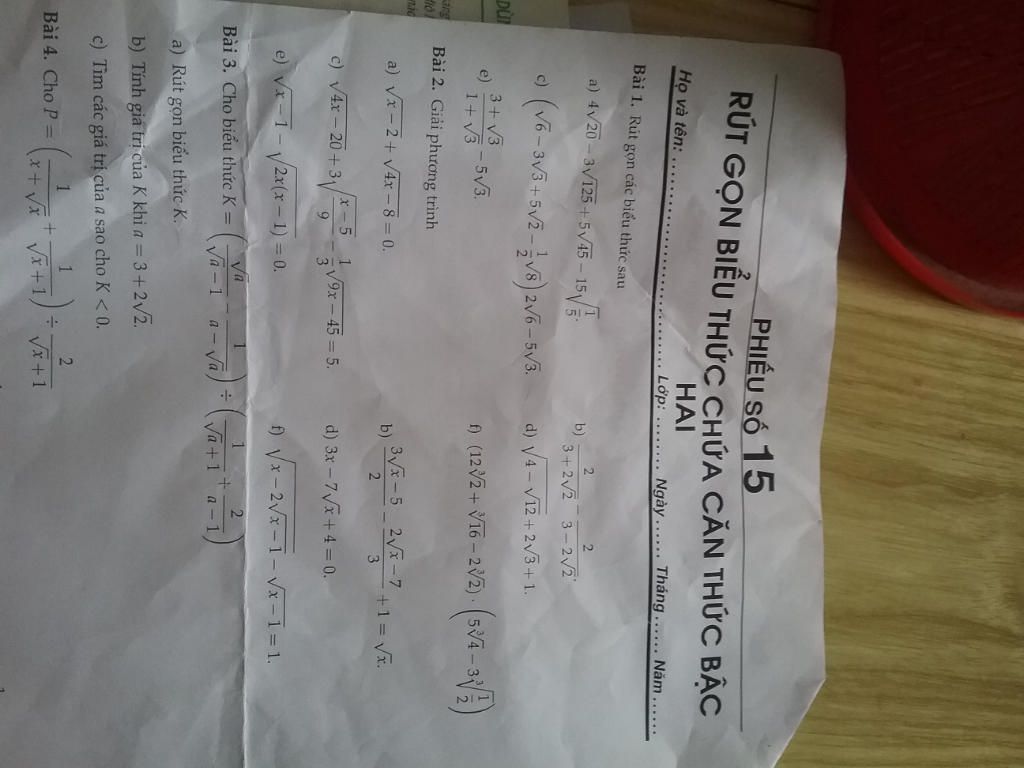 PHIẾU SỐ 15
RÚT GỌN BIỂU THỨC CHỨA CĂN THỨC BẬC
HAI
Họ và tên: ........................................ Lớp: ......... Ngày ...... Tháng ...... Năm ......
Bài 1. Rút gọn các biểu thức sau
a) 4√20 − 3√125 + 5√45 − 15√(1/5).
b) 2/(3 + 2√2) − 2/(3 − 2√2).
c) (√6 − 3√3 + 5√2 − 1/2√6) 2√6 − 5√3.
d) √(4 − √12) + 2√3 + 1.
e) (3 + √3)/(1 + √3) − 5√3.
f) (12∛2 + ∛16 − 2∛2) · (5∛4 − 3∛(1/2))
Bài 2. Giải phương trình
a) √(x − 2) + √(4x − 8) = 0.
b) (3√x − 5)/2 − (2√x − 7)/3 + 1 = √x.
c) √(4x − 20) + 3√((x − 5)/9) − 1/3√(9x − 45) = 5.
d) 3x − 7√x + 4 = 0.
e) √(x − 1) − √(2x(x − 1)) = 0.
f) √(x − 2√(x − 1)) − √(x − 1) = 1.
Bài 3. Cho biểu thức K = (√a/(√a − 1) − 1/(a − √a)) ÷ (1/(√a + 1) + 2/(a − 1))
a) Rút gọn biểu thức K.
b) Tính giá trị của K khi a = 3 + 2√2.
c) Tìm các giá trị của a sao cho K < 0.
Bài 4. Cho P = (1/(x + √x) + 1/(√x + 1)) ÷ 2/(√x + 1)